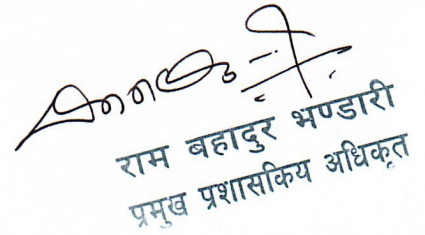 राम बहादुर भण्डारी
प्रमुख प्रशासकिय अधिकृत